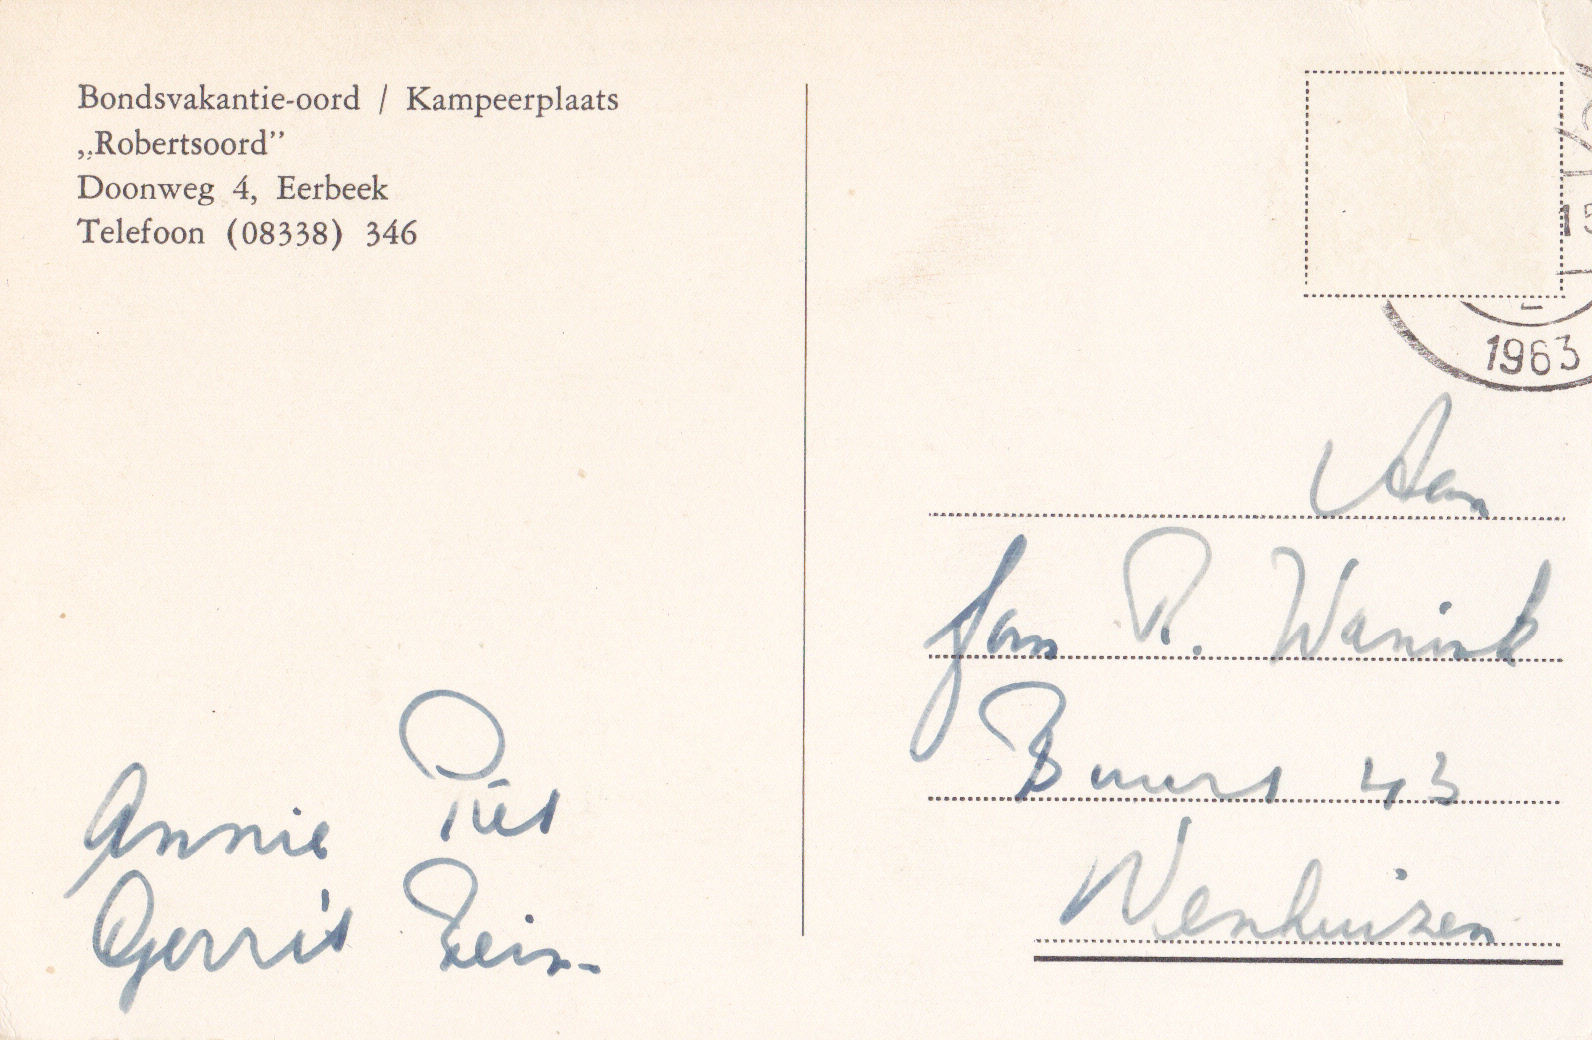 Bondsvakantie-oord / Kampeerplaats
„Robertsoord”
Doonweg 4, Eerbeek
Telefoon (08338) 346
15
1963
Aan
Jan P. Wanink
Buurt 43
Venhuizen
Annie Piet
Gerrit Rein.